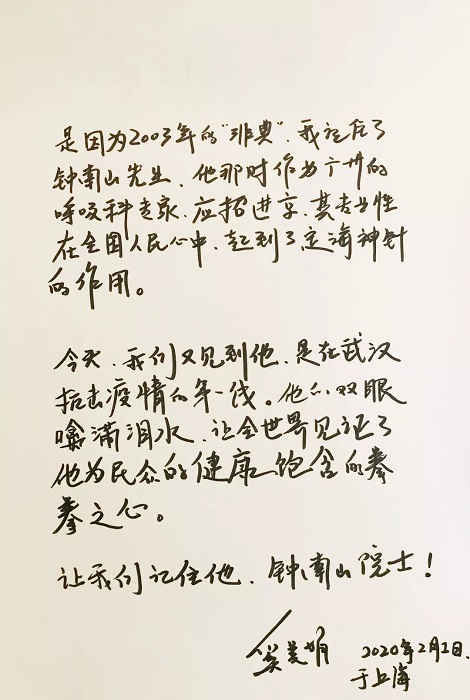 是因为2003年的“非典”,我记住了
钟南山先生,他那时作为广州的
呼吸科专家,应招进京,其专业性
在全国人民心中,起到了定海神针
的作用。
今天,我们又见到他,是在武汉
抗击疫情的第一线。他的双眼
噙满泪水,让全世界见证了
他为民众的健康饱含的拳
拳之心。
让我们记住他,钟南山院士!
奚美娟
2020年2月2日,
于上海